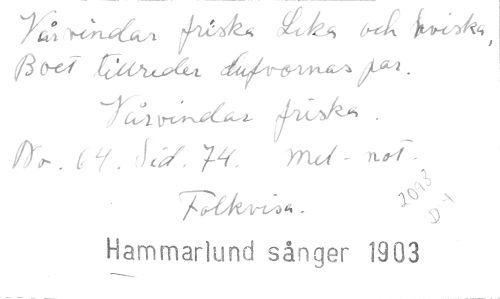 Vårvindar friska Leka och hviska,
Boet tillreder dufvornas par.
Vårvindar friska.
No. 64. Sid. 74. Mel-not.
Folkvisa.
2093
D 4
Hammarlund sånger 1903